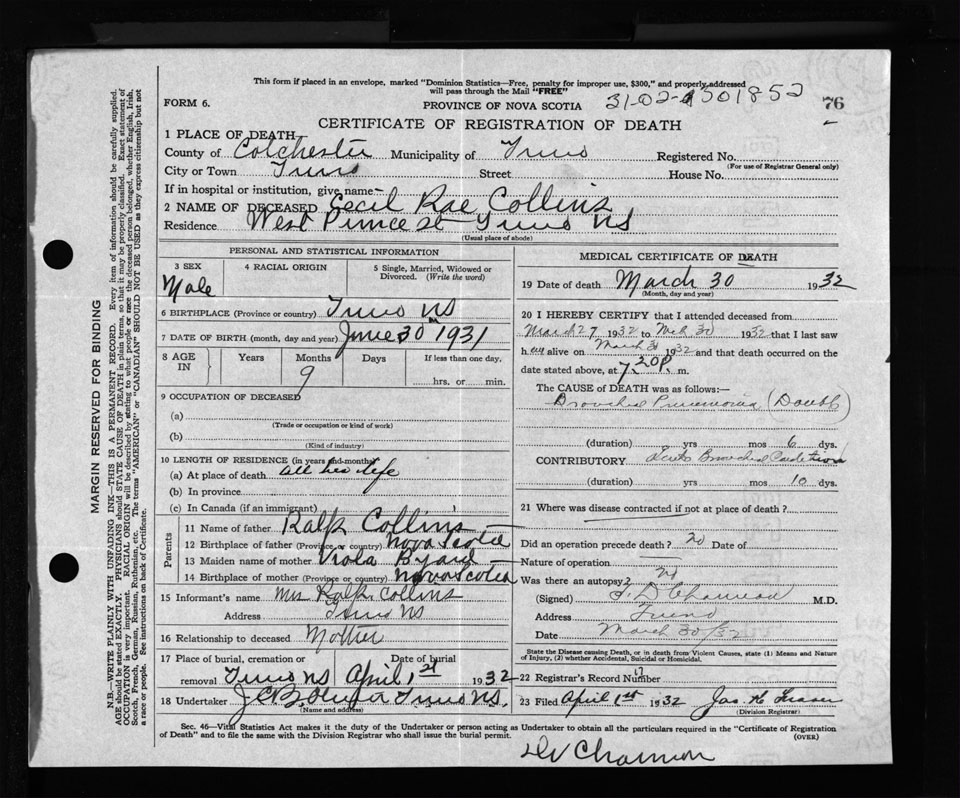 This form if placed in an envelope, marked "Dominion Statistics—Free, penalty for improper use, $300," and properly addressed
will pass through the Mail "FREE"
FORM 6. PROVINCE OF NOVA SCOTIA 31-02-501852 76
CERTIFICATE OF REGISTRATION OF DEATH
1 PLACE OF DEATH
County of Colchester Municipality of Truro Registered No.
(For use of Registrar General only)
City or Town Truro Street House No.
If in hospital or institution, give name—
2 NAME OF DECEASED Cecil Rae Collins
Residence West Prince St Truro NS
(Usual place of abode)
PERSONAL AND STATISTICAL INFORMATION
3 SEX 4 RACIAL ORIGIN 5 Single, Married, Widowed or Divorced. (Write the word)
Male
6 BIRTHPLACE (Province or country) Truro NS
7 DATE OF BIRTH (month, day and year) June 30 1931
8 AGE IN Years Months Days If less than one day,
9 hrs. or min.
9 OCCUPATION OF DECEASED
(a)
(Trade or occupation or kind of work)
(b)
(Kind of industry)
10 LENGTH OF RESIDENCE (in years and months)
(a) At place of death all his life
(b) In province
(c) In Canada (if an immigrant)
Parents
11 Name of father Ralph Collins
12 Birthplace of father (Province or country) Nova Scotia
13 Maiden name of mother Viola Byard
14 Birthplace of mother (Province or country) Nova Scotia
15 Informant's name Mrs Ralph Collins
Address Truro NS
16 Relationship to deceased Mother
17 Place of burial, cremation or removal Date of burial
Truro NS April 1st 1932
18 Undertaker Truro NS.
(Name and address)
MEDICAL CERTIFICATE OF DEATH
19 Date of death March 30 1932
(Month, day and year)
20 I HEREBY CERTIFY that I attended deceased from
March 27 1932 to Mch 30 1932 that I last saw
h im alive on March 30 1932 and that death occurred on the
date stated above, at 7.20 P. m.
The CAUSE of DEATH was as follows:—
Bronchial Pneumonia (Double)
(duration) yrs mos 6 dys.
CONTRIBUTORY Bronchial
(duration) yrs mos 10 dys.
21 Where was disease contracted if not at place of death?
Did an operation precede death? no Date of
Nature of operation
Was there an autopsy?
(Signed) M.D.
Address Truro
Date March 30/32
State the Disease causing Death, or in death from Violent Causes, state (1) Means and Nature
of Injury, (2) whether Accidental, Suicidal or Homicidal.
22 Registrar's Record Number
23 Filed April 1st 1932
(Division Registrar)
Sec. 46—Vital Statistics Act makes it the duty of the Undertaker or person acting as Undertaker to obtain all the particulars required in the "Certificate of Registration
of Death" and to file the same with the Division Registrar who shall issue the burial permit. (OVER)
MARGIN RESERVED FOR BINDING
N.B.—WRITE PLAINLY WITH UNFADING INK—THIS IS A PERMANENT RECORD. Every item of information should be carefully supplied.
AGE should be stated EXACTLY. PHYSICIANS should STATE CAUSE OF DEATH in plain terms, so that it may be properly classified. Exact statement of
OCCUPATION is very important. RACIAL ORIGIN will be described by stating to what people or race the deceased person belonged, whether English, Irish,
Scotch, French, German, Russian, Ruthenian, etc. The terms "AMERICAN" or "CANADIAN" SHOULD NOT BE USED as they express citizenship but not
a race or people. See instructions on back of Certificate.